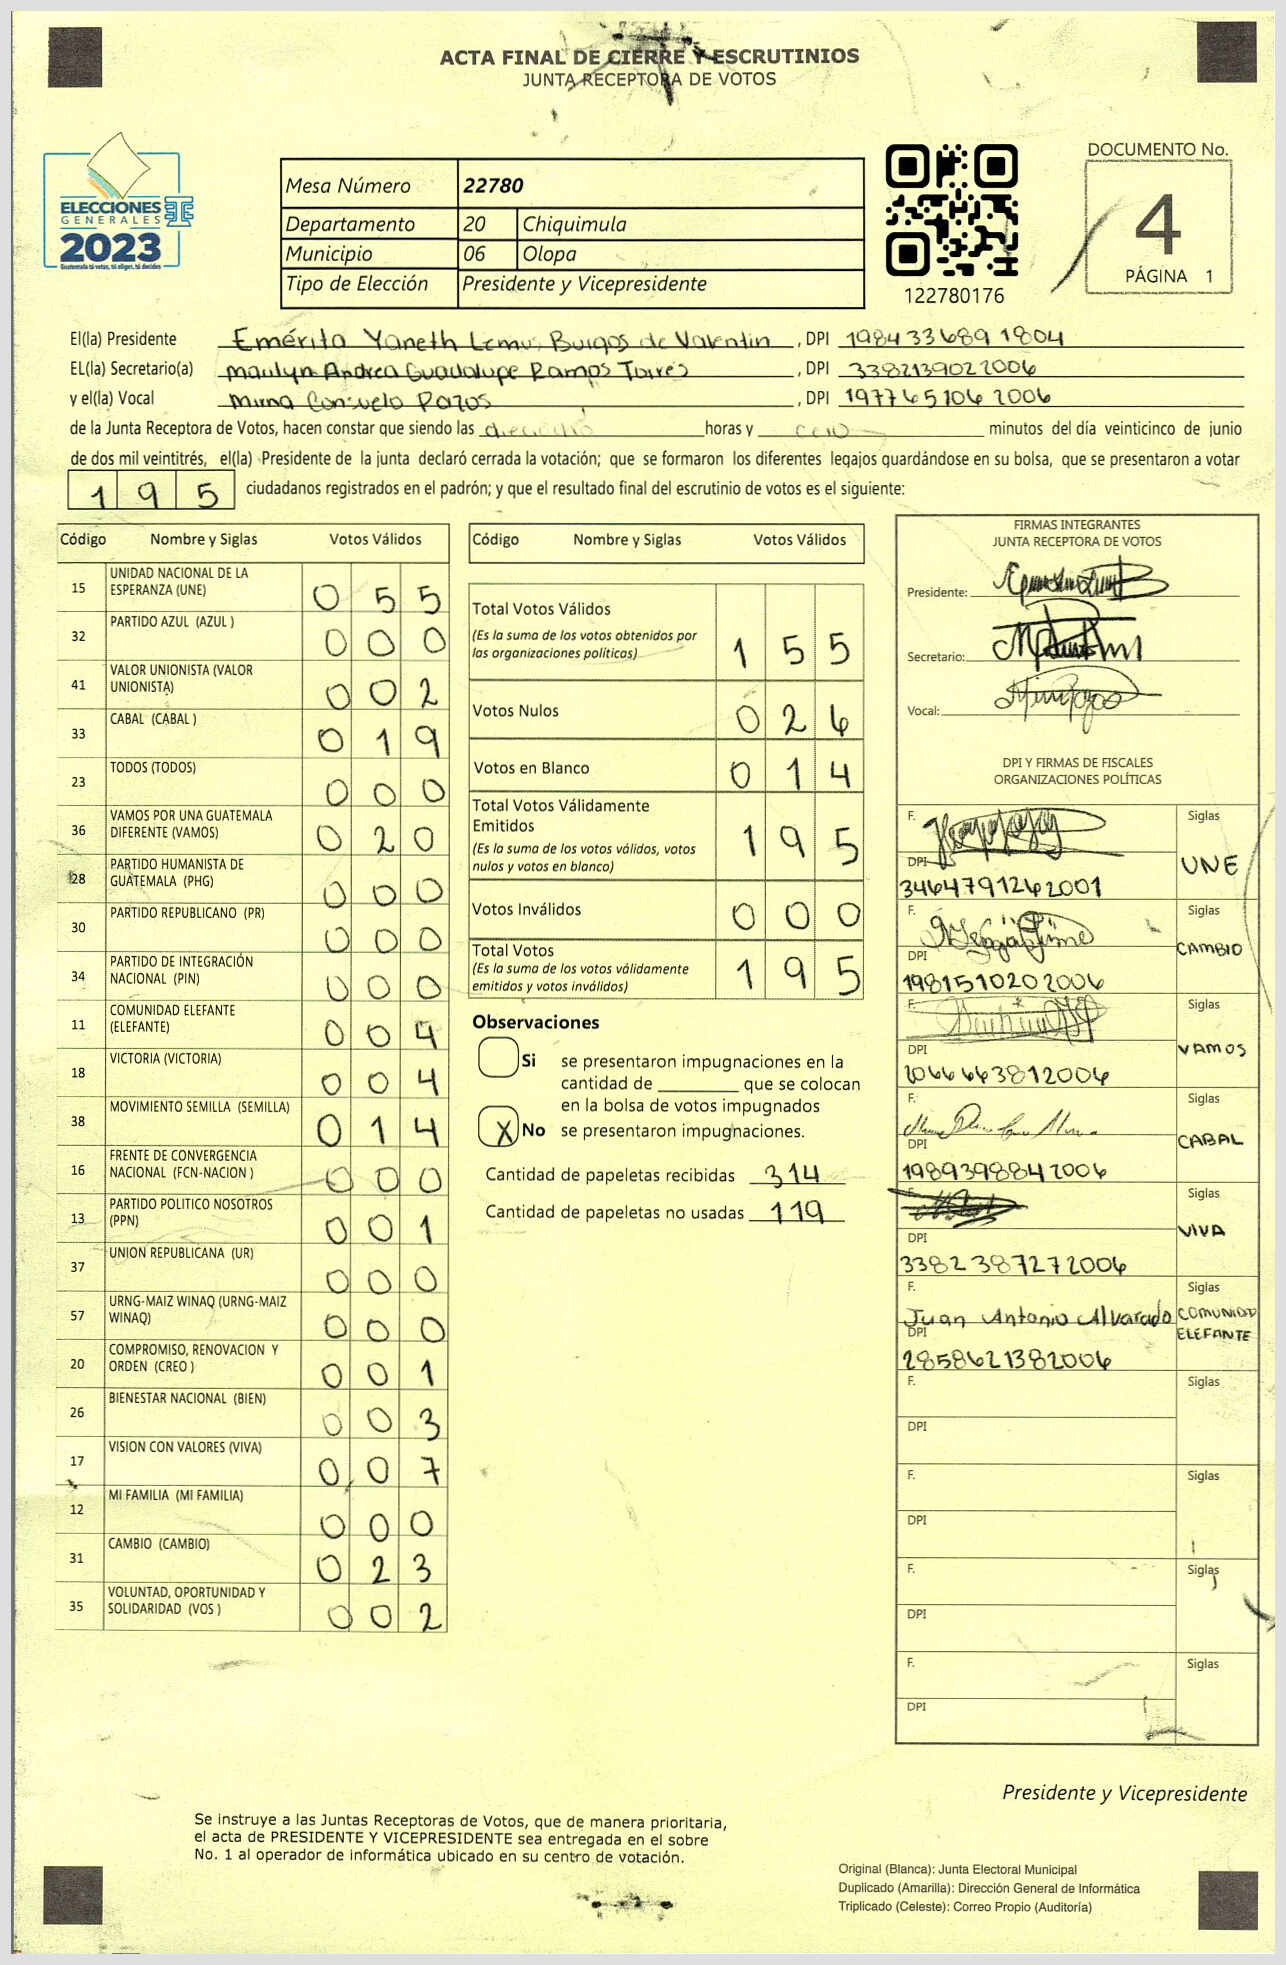 ACTA FINAL DE CIERRE Y ESCRUTINIOS
JUNTA RECEPTORA DE VOTOS
ELECCIONES
GENERALES
2023
Guatemala tú votas, tú eliges, tú decides
Mesa Número 22780
Departamento 20 Chiquimula
Municipio 06 Olopa
Tipo de Elección Presidente y Vicepresidente
122780176
DOCUMENTO No.
4
PÁGINA 1
El(la) Presidente Emérita Yaneth Lemus Burgos de Valentin , DPI 1984336891804
EL(la) Secretario(a) Andrea Guadalupe Ramos Torres , DPI 3382139022006
y el(la) Vocal Mirna Consuelo Pazos , DPI 1977451062006
de la Junta Receptora de Votos, hacen constar que siendo las dieciocho horas y cero minutos del día veinticinco de junio
de dos mil veintitrés, el(la) Presidente de la junta declaró cerrada la votación; que se formaron los diferentes legajos guardándose en su bolsa, que se presentaron a votar
195 ciudadanos registrados en el padrón; y que el resultado final del escrutinio de votos es el siguiente:
Código Nombre y Siglas Votos Válidos
15 UNIDAD NACIONAL DE LA ESPERANZA (UNE) 0 5 5
32 PARTIDO AZUL (AZUL ) 0 0 0
41 VALOR UNIONISTA (VALOR UNIONISTA) 0 0 2
33 CABAL (CABAL ) 0 1 9
23 TODOS (TODOS) 0 0 0
36 VAMOS POR UNA GUATEMALA DIFERENTE (VAMOS) 0 2 0
28 PARTIDO HUMANISTA DE GUATEMALA (PHG) 0 0 0
30 PARTIDO REPUBLICANO (PR) 0 0 0
34 PARTIDO DE INTEGRACIÓN NACIONAL (PIN) 0 0 0
11 COMUNIDAD ELEFANTE (ELEFANTE) 0 0 4
18 VICTORIA (VICTORIA) 0 0 4
38 MOVIMIENTO SEMILLA (SEMILLA) 0 1 4
16 FRENTE DE CONVERGENCIA NACIONAL (FCN-NACION ) 0 0 0
13 PARTIDO POLITICO NOSOTROS (PPN) 0 0 1
37 UNION REPUBLICANA (UR) 0 0 0
57 URNG-MAIZ WINAQ (URNG-MAIZ WINAQ) 0 0 0
20 COMPROMISO, RENOVACION Y ORDEN (CREO ) 0 0 1
26 BIENESTAR NACIONAL (BIEN) 0 0 3
17 VISION CON VALORES (VIVA) 0 0 7
12 MI FAMILIA (MI FAMILIA) 0 0 0
31 CAMBIO (CAMBIO) 0 2 3
35 VOLUNTAD, OPORTUNIDAD Y SOLIDARIDAD (VOS ) 0 0 2
Código Nombre y Siglas Votos Válidos
Total Votos Válidos
(Es la suma de los votos obtenidos por
las organizaciones políticas) 1 5 5
Votos Nulos 0 2 6
Votos en Blanco 0 1 4
Total Votos Válidamente
Emitidos
(Es la suma de los votos válidos, votos
nulos y votos en blanco) 1 9 5
Votos Inválidos 0 0 0
Total Votos
(Es la suma de los votos válidamente
emitidos y votos inválidos) 1 9 5
Observaciones
Si se presentaron impugnaciones en la
cantidad de ________ que se colocan
en la bolsa de votos impugnados
X No se presentaron impugnaciones.
Cantidad de papeletas recibidas 314
Cantidad de papeletas no usadas 119
FIRMAS INTEGRANTES
JUNTA RECEPTORA DE VOTOS
Presidente:
Secretario:
Vocal:
DPI Y FIRMAS DE FISCALES
ORGANIZACIONES POLÍTICAS
F. Siglas
DPI UNE
3464791262001
F. Siglas
DPI CAMBIO
1981510202006
F. Siglas
DPI VAMOS
2066663812006
F. Siglas
DPI CABAL
1989398842006
F. Siglas
DPI VIVA
3382387272006
F. Siglas
Juan Antonio Alvarado COMUNIDAD
DPI ELEFANTE
2858621382006
F. Siglas
DPI
F. Siglas
DPI
F. Siglas
DPI
F. Siglas
DPI
Presidente y Vicepresidente
Se instruye a las Juntas Receptoras de Votos, que de manera prioritaria,
el acta de PRESIDENTE Y VICEPRESIDENTE sea entregada en el sobre
No. 1 al operador de informática ubicado en su centro de votación.
Original (Blanca): Junta Electoral Municipal
Duplicado (Amarilla): Dirección General de Informática
Triplicado (Celeste): Correo Propio (Auditoría)